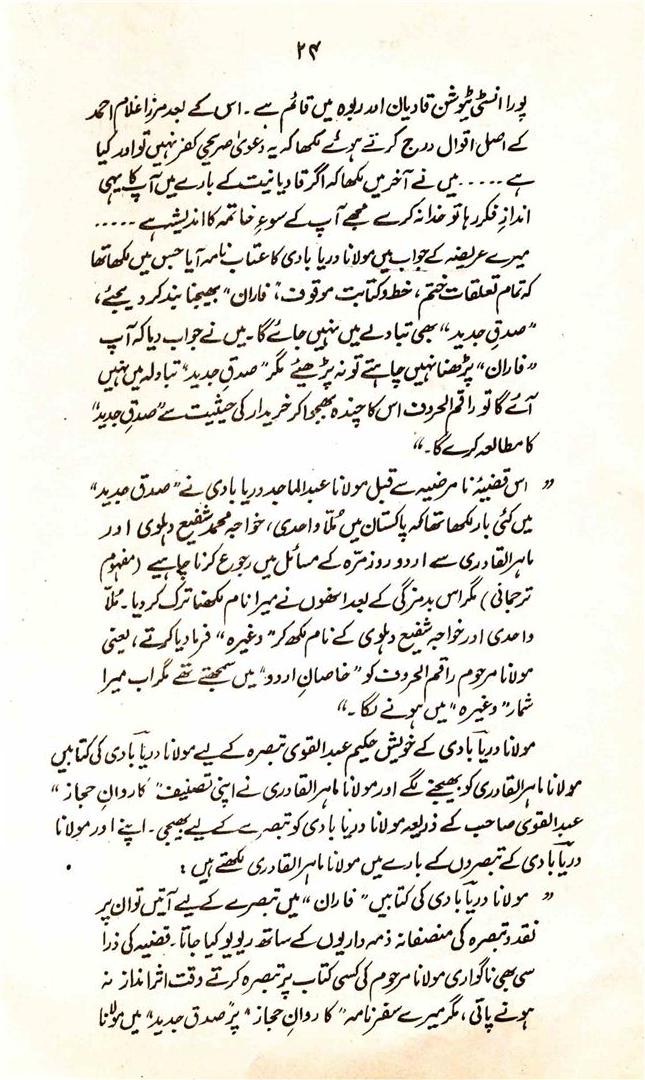 ۲۴
پورا انسٹی ٹیوشن قادیان اور ربوہ میں قائم ہے۔ اس کے بعد مرزا غلام احمد
کے اصل اقوال درج کرتے ہوئے لکھا کہ یہ دعویٰ صریحی کفر نہیں تو اور کیا
ہے ..... میں نے آخر میں لکھا کہ اگر قادیانیت کے بارے میں آپ کا یہی
اندازِ فکر رہا تو خدا نہ کرے مجھے آپ کے سوءِ خاتمہ کا اندیشہ ہے .....
میرے عریضہ کے جواب میں مولانا دریا بادی کا عتاب نامہ آیا جس میں لکھا تھا
کہ تمام تعلقات ختم، خط و کتابت موقوف، "فاران" بھیجنا بند کر دیجئے،
"صدقِ جدید" بھی تبادلے میں نہیں جائے گا۔ میں نے جواب دیا کہ آپ
"فاران" پڑھنا نہیں چاہتے تو نہ پڑھیئے مگر "صدقِ جدید" تبادلہ میں نہیں
آئے گا تو راقم الحروف اس کا چندہ بھجوا کر خریدار کی حیثیت سے "صدقِ جدید"
کا مطالعہ کرے گا۔"
" اس قضیۂ نا مرضیہ سے قبل مولانا عبدالماجد دریا بادی نے "صدق جدید"
میں کئی بار لکھا تھا کہ پاکستان میں مُلّا واحدی، خواجہ محمد شفیع دہلوی اور
ماہر القادری سے اردو روز مرّہ کے مسائل میں رجوع کرنا چاہیے (مفہوم
ترجمانی) مگر اس بدمزگی کے بعد انھوں نے میرا نام لکھنا ترک کر دیا۔ مُلّا
واحدی اور خواجہ شفیع دہلوی کے نام لکھ کر "وغیرہ" فرما دیا کرتے، یعنی
مولانا مرحوم راقم الحروف کو "خاصانِ اردو" میں سمجھتے تھے مگر اب میرا
شمار "وغیرہ" میں ہونے لگا۔"
مولانا دریا آبادی کے خویش حکیم عبدالقوی تبصرہ کے لیے مولانا دریا آبادی کی کتابیں
مولانا ماہر القادری کو بھیجنے لگے اور مولانا ماہر القادری نے اپنی تصنیف "کاروانِ حجاز"
عبدالقوی صاحب کے ذریعہ مولانا دریا بادی کو تبصرے کے لیے بھیجی۔ اپنے اور مولانا
دریا آبادی کے تبصروں کے بارے میں مولانا ماہر القادری لکھتے ہیں:
" مولانا دریا آبادی کی کتابیں "فاران" میں تبصرے کے لیے آتیں تو ان پر
نقد و تبصرہ کی منصفانہ ذمہ داریوں کے ساتھ ریویو کیا جاتا۔ قضیہ کی ذرا
سی بھی ناگواری مولانا مرحوم کی کسی کتاب پر تبصرہ کرتے وقت اثر انداز نہ
ہونے پاتی، مگر میرے سفرنامہ "کاروانِ حجاز" پر "صدق جدید" میں مولانا